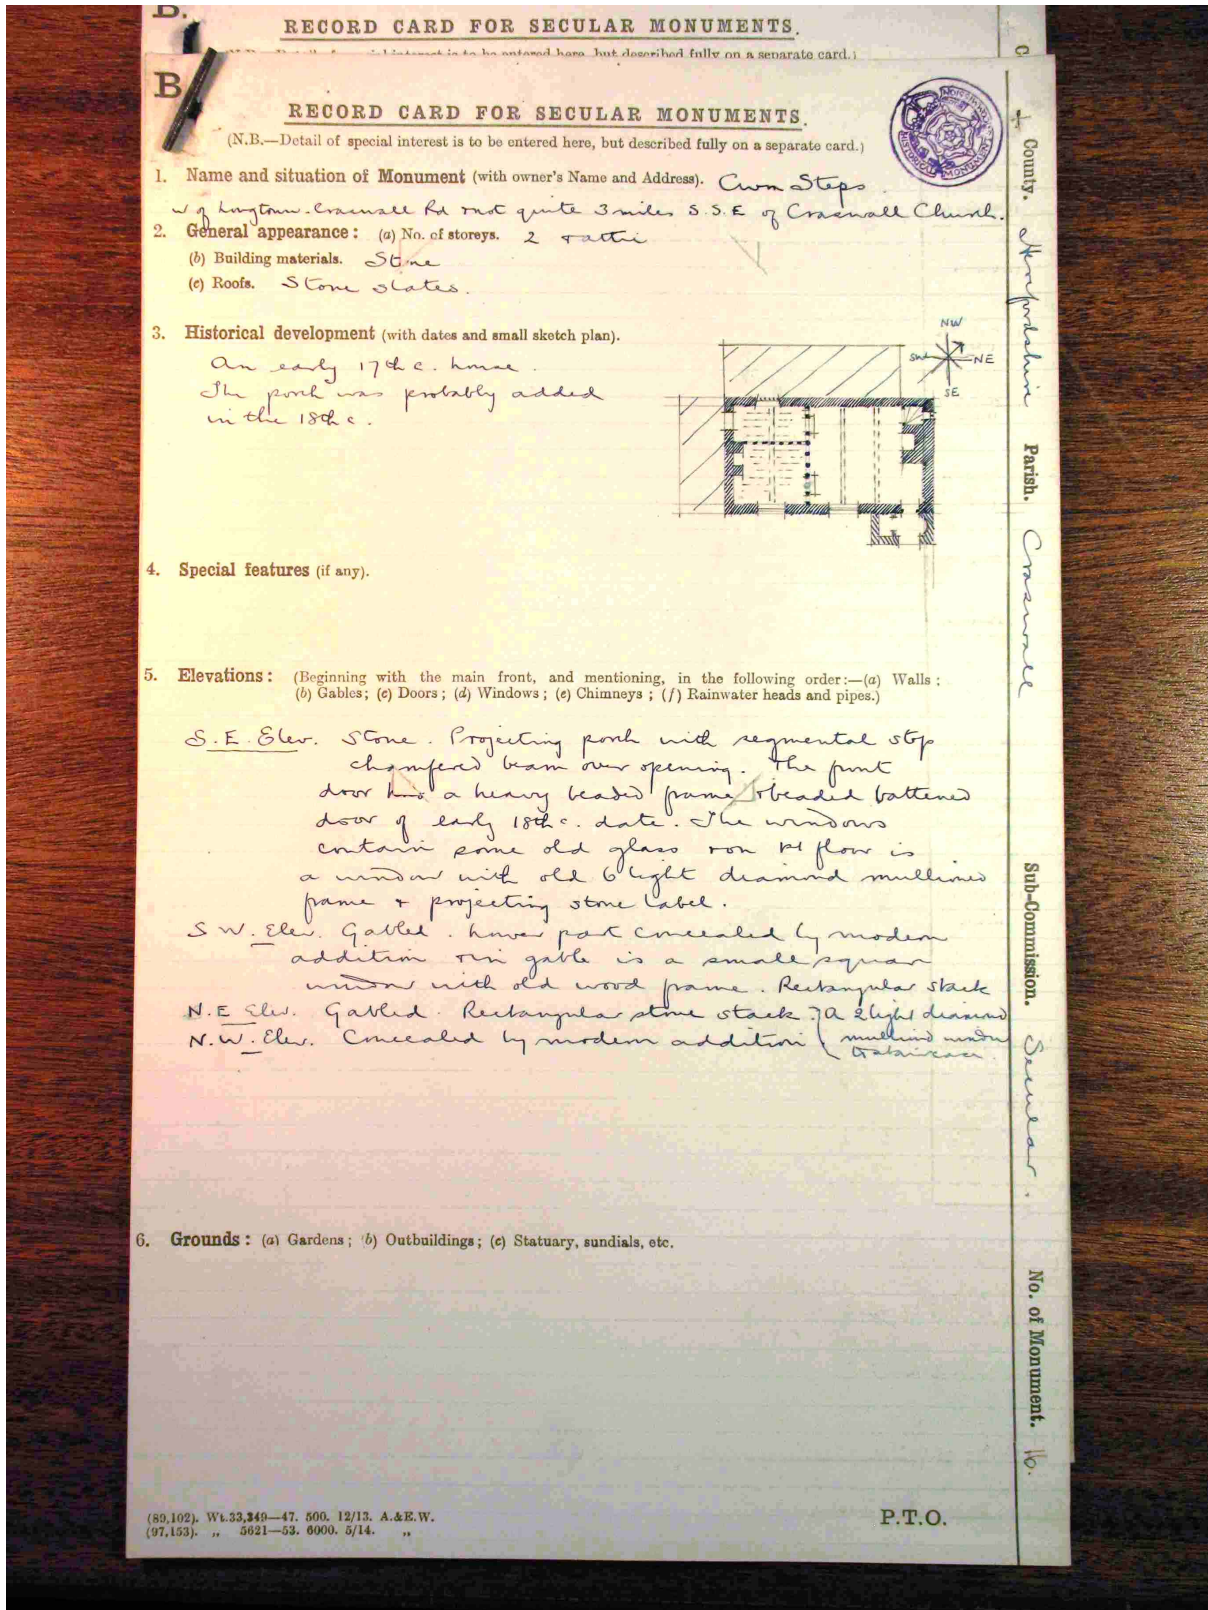 B.
RECORD CARD FOR SECULAR MONUMENTS.
to be entered here, but described fully on a separate card.)
B
RECORD CARD FOR SECULAR MONUMENTS.
(N.B.—Detail of special interest is to be entered here, but described fully on a separate card.)
1. Name and situation of Monument (with owner's Name and Address). Cwm Steps
W of Longtown-Craswall Rd & not quite 3 miles S.S.E of Craswall Church.
2. General appearance: (a) No. of storeys. 2 & attic
(b) Building materials. Stone
(c) Roofs. Stone slates.
3. Historical development (with dates and small sketch plan).
An early 17th c. house.
The porch was probably added
in the 18th c.
NW
SW NE
SE
4. Special features (if any).
5. Elevations: (Beginning with the main front, and mentioning, in the following order:—(a) Walls;
(b) Gables; (c) Doors; (d) Windows; (e) Chimneys; (f) Rainwater heads and pipes.)
S.E. Elev. Stone. Projecting porch with segmental stop
chamfered beam over opening. The front
door has a heavy beaded frame & beaded battened
door of early 18th c. date. The windows
contain some old glass & on 1st floor is
a window with old 6 light diamond mullioned
frame & projecting stone label.
S W. Elev. Gabled. Lower part concealed by modern
addition & in gable is a small square
window with old wood frame. Rectangular stack
N.E Elev. Gabled. Rectangular stone stack. A 2 light diamond
N.W. Elev. Concealed by modern addition mullioned window
to staircase
6. Grounds: (a) Gardens; (b) Outbuildings; (c) Statuary, sundials, etc.
(89,102). Wt.33,349—47. 500. 12/13. A.&E.W.
(97,153). „ 5621—53. 6000. 5/14. „
P.T.O.
County. Herefordshire
Parish. Craswall
Sub-Commission. Secular.
No. of Monument. 16.